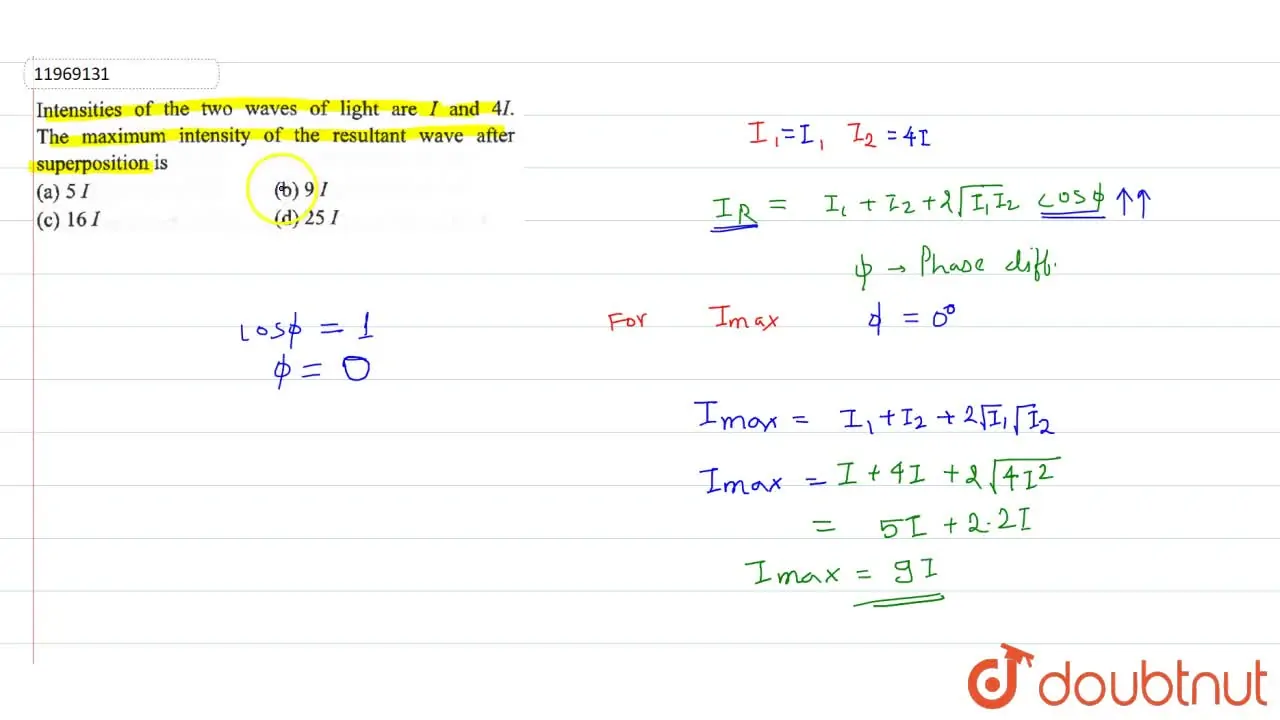 11969131
Intensities of the two waves of light are I and 4I.
The maximum intensity of the resultant wave after
superposition is
(a) 5 I (b) 9 I
(c) 16 I (d) 25 I
cosϕ = 1
ϕ = 0
I₁ = I, I₂ = 4I
I_R = I₁ + I₂ + 2√I₁I₂ cosϕ ↑↑
ϕ → Phase diff.
For Imax ϕ = 0°
Imax = I₁ + I₂ + 2√I₁√I₂
Imax = I + 4I + 2√4I²
= 5I + 2.2I
Imax = 9I
doubtnut